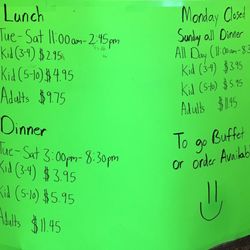 Lunch
Tue-Sat 11:00am-2:45pm
Kid (3-4) $2.95
Kid (5-10) $4.95
Adults $9.75
Dinner
Tue-Sat 3:00pm-8:30pm
Kid (3-4) $3.95
Kid (5-10) $5.95
Adults $11.45
Monday Closed
Sunday all Dinner
All Day (11:00am-8:3
Kid (3-4) $3.95
Kid (5-10) $5.95
Adults $11.45
To go Buffet
or order Available